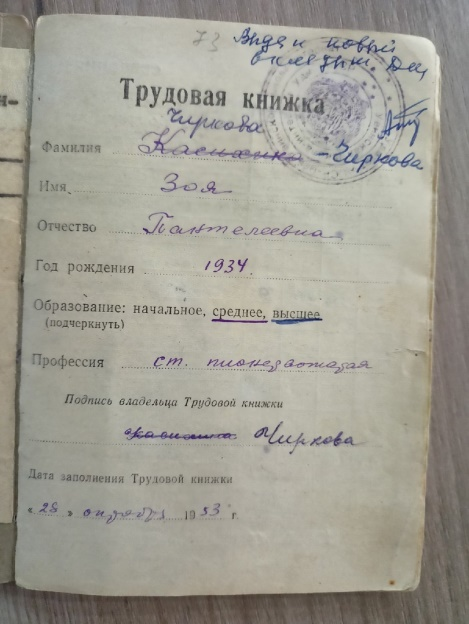 73 Выдан новый
Трудовая книжка
Чиркова
Фамилия - Чиркова
Имя Зоя
Отчество Пантелеевна
Год рождения 1934.
Образование: начальное, среднее, высшее
(подчеркнуть)
Профессия ст. пионервожатая
Подпись владельца Трудовой книжки
Чиркова
Дата заполнения Трудовой книжки
« 28 » октября 1953 г.